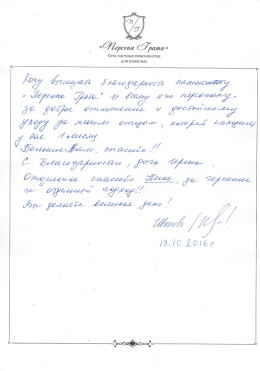 П/Г
«Персона Грата»
Сеть частных пансионатов
для пожилых
Хочу выразить благодарность пансионату
"Персона Грата" и всему его персоналу
за доброе отношение и достойному
уходу за моим отцом, который находился
у вас 1 месяц
Большое Вам, спасибо!!
С Благодарностью, дочь Ирина.
Отдельное спасибо за терпение
и огромный подход!!
Вы делаете великое дело!
13.10.2016 г